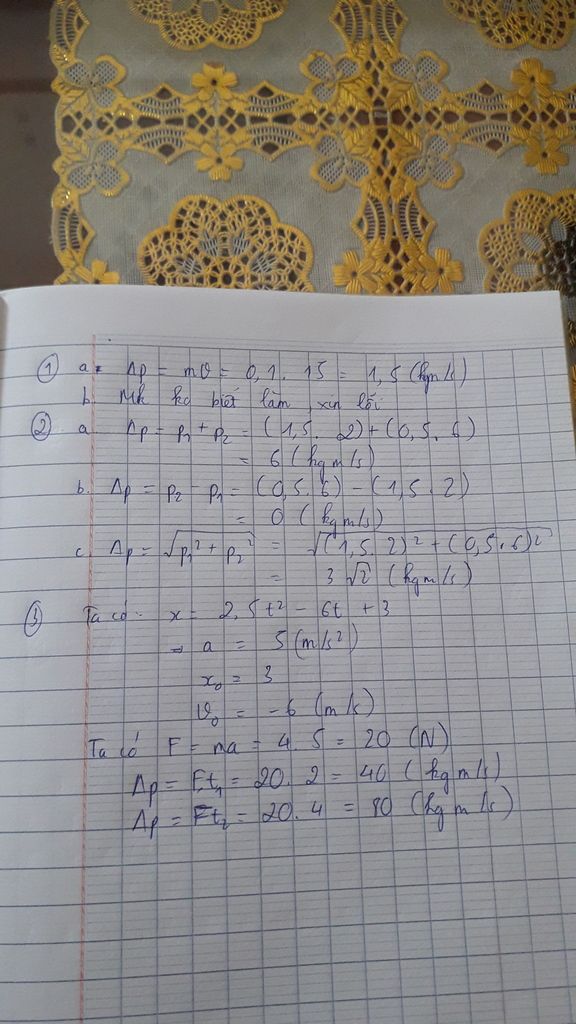 ① a. Δp = mv = 0,1. 15 = 1,5 (kgm/s)
b. Mk ko biết làm, xin lỗi
② a. Δp = p₁ + p₂ = (1,5. 2) + (0,5. 6)
= 6 (kgm/s)
b. Δp = p₂ - p₁ = (0,5. 6) - (1,5. 2)
= 0 (kgm/s)
c. Δp = √(p₁² + p₂²) = √((1,5. 2)² + (0,5. 6)²)
= 3√2 (kgm/s)
③ Ta có: x = 2,5t² - 6t + 3
→ a = 5 (m/s²)
x₀ = 3
v₀ = -6 (m/s)
Ta có F = ma = 4. 5 = 20 (N)
Δp = Ft₁ = 20. 2 = 40 (kgm/s)
Δp = Ft₂ = 20. 4 = 80 (kgm/s)